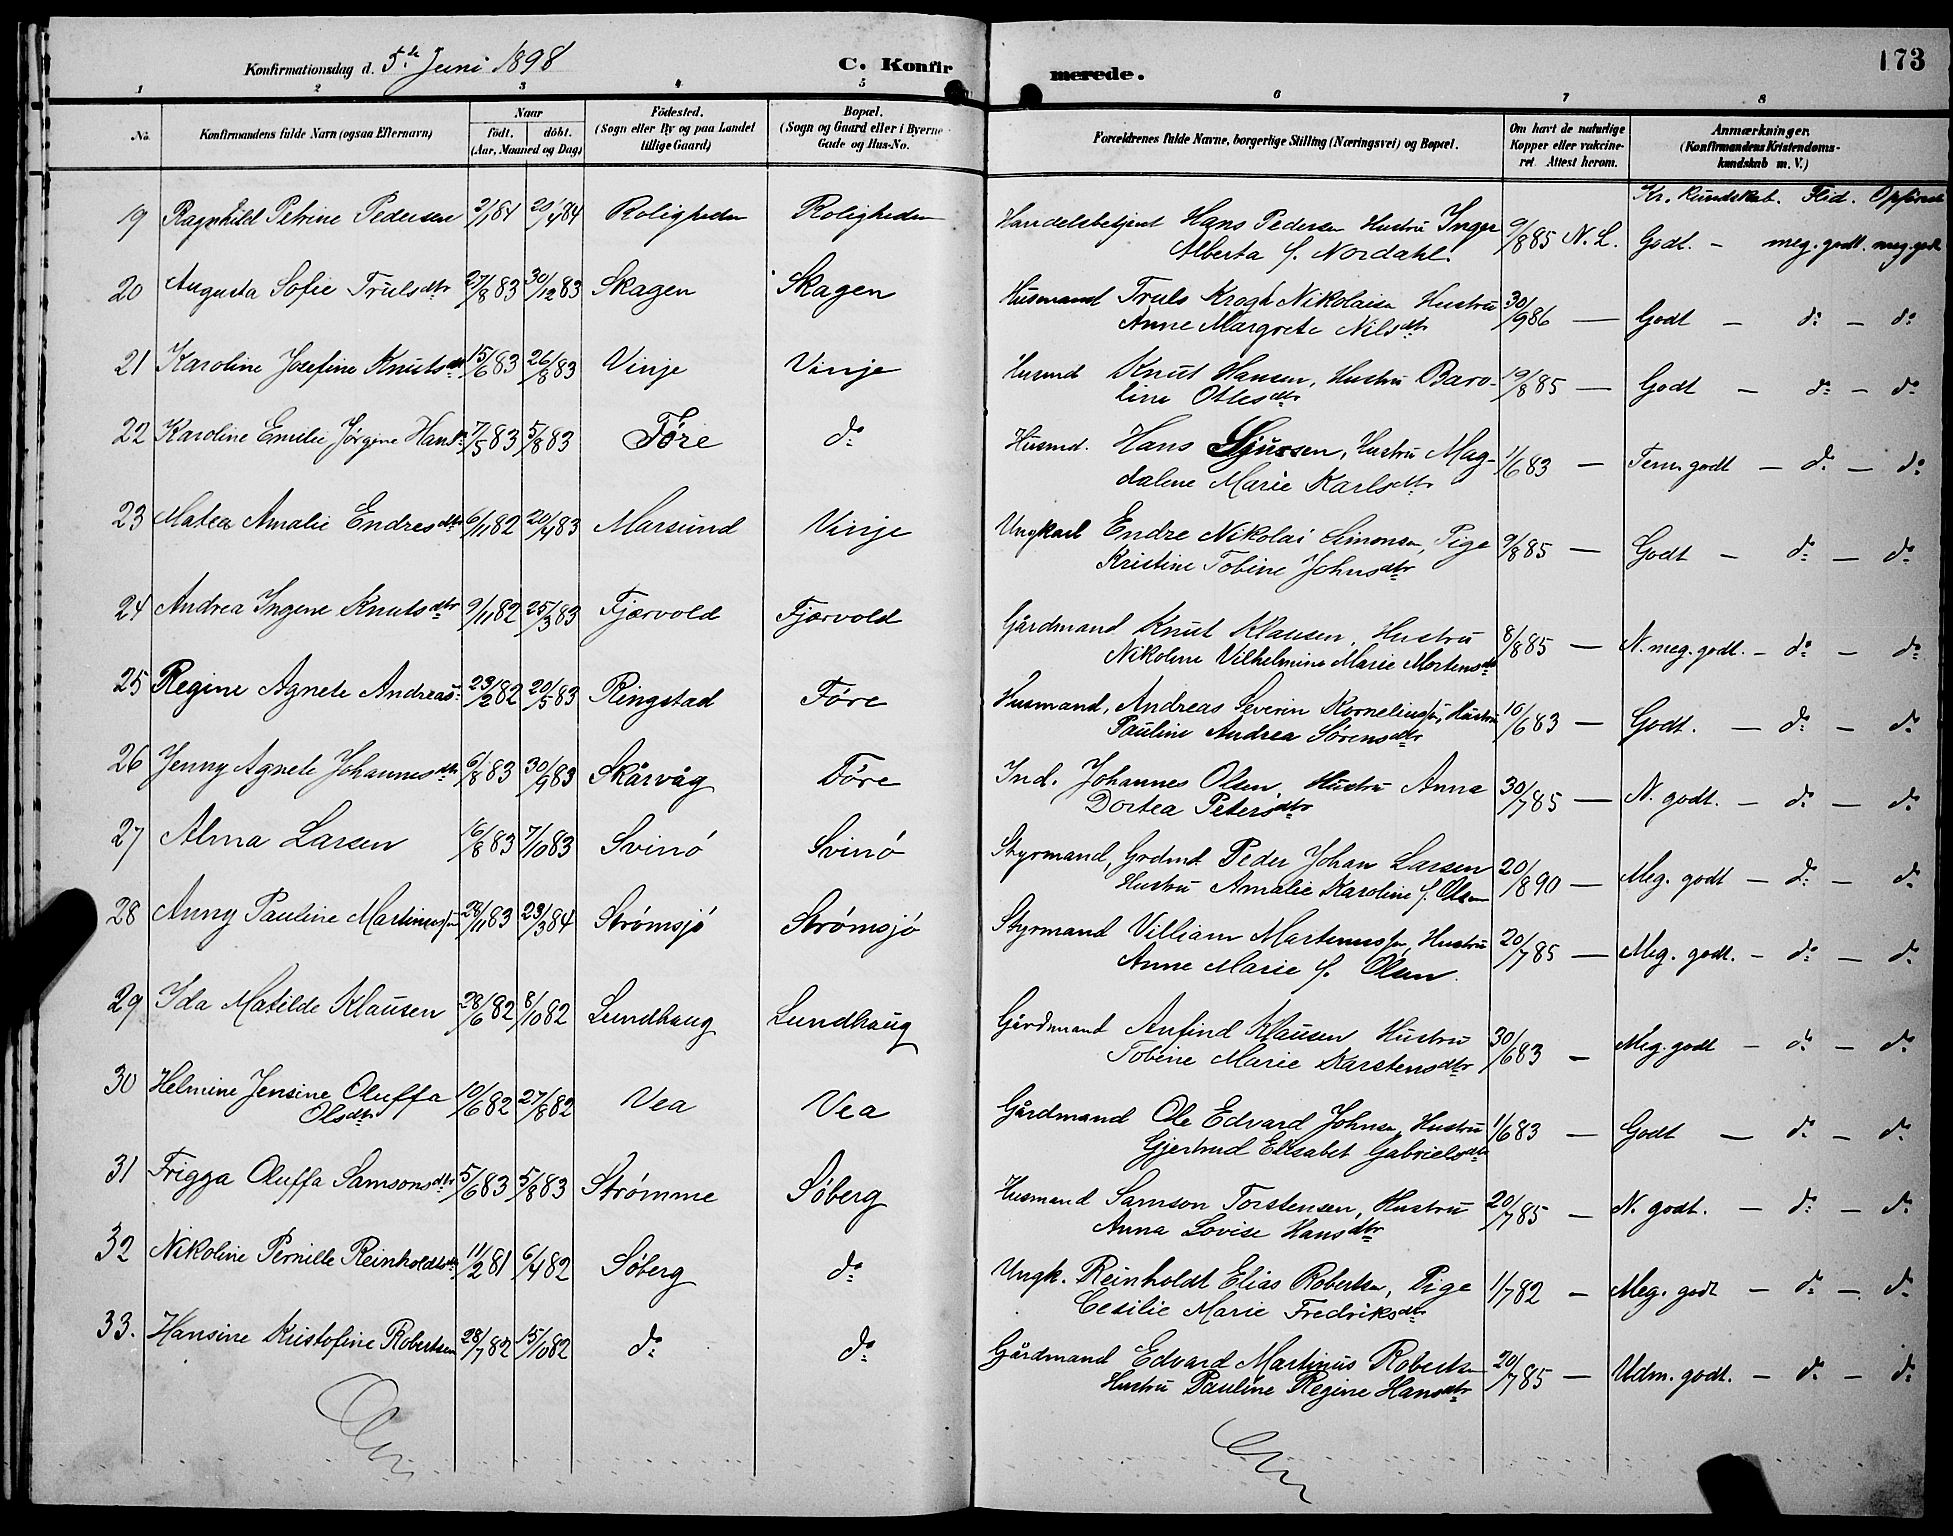 Konfirmationsdag d. 5te Juni 1898
C. Konfirmerede.
173
1 2 3 4 5 6 7 8
No.
Konfirmandens fulde Navn (ogsaa Efternavn)
Naar
födt. döbt.
(Aar, Maaned og Dag)
Födested.
(Sogn eller By og paa Landet
tillige Gaard)
Bopæl.
(Sogn og Gaard eller i Byerne
Gade og Hus-No.
Forældrenes fulde Navne, borgerlige Stilling (Næringsvei) og Bopæl.
Om havt de naturlige
Kopper eller vakcine-
ret. Attest herom.
Anmærkninger.
(Konfirmandens Kristendoms-
kundskab m. V.)
Kr. kundskab. Flid. Opførsel
19 Ragnhild Petrine Pedersen 2/1 84 20/4 84 Roligheden Roligheden Handelsbetjent Hans Pedersen Hustru Inger 9/8 85 N. L. Godt. - meg. godt. meg. godt
Alberta f. Nordahl.
20 Augusta Sofie Trulsdtr 27/8 83 30/12 83 Skagen Skagen Husmand Truls Krogh Nikolaisen Hustru 30/9 86 — Godt - do - do
Anne Margrete Nilsdtr
21 Karoline Josefine Knutsdtr 15/6 83 26/8 83 Vinje Vinje Husmd Knut Hansen, Hustru Baro- 19/8 85 — Godt - do - do
line Otlesdtr
22 Karoline Emilie Jørgine Hansd 7/5 83 5/8 83 Føre do Husmd. Hans Sjursen, Hustru Mag- 1/6 83 — Tem. godt - do - do
dalene Marie Karlsdtr
23 Matea Amalie Endresdtr 6/11 82 20/4 83 Marsund Vinje Ungkarl Endre Nikolai Simonsen, Pige 9/8 85 — Godt - do - do
Kristine Tobine Johnsdtr
24 Andrea Ingine Knutsdtr 9/11 82 25/3 83 Fjærvold Fjærvold Gårdmand Knut Klausen, Hustru 8/8 85 — N. meg. godt. - do - do
Nikoline Vilhelmine Marie Mortensdtr
25 Regine Agnete Andreas 23/2 82 20/5 83 Ringstad Føre Husmand, Andreas Severin Korneliussen, Hustru 10/6 83 — Godt. - do - do
Pauline Andrea Sørensdtr
26 Jenny Agnete Johannesdtr 6/8 83 30/9 83 Skårvåg Føre Ind. Johannes Olsen Hustru Anna 30/7 85 — N. godt. - do - do
Dortea Petersdtr
27 Alma Larsen 16/8 83 7/10 83 Svinö Svinö Styrmand, Grdmd Peder Johan Larsen 20/8 90 — Meg. godt - do - do
Hustru Amalie Karoline f. Olsen
28 Anny Pauline Martinussen 28/11 83 23/3 84 Strømsjö Strømsjö Styrmand Villiam Martinussen, Hustru 20/7 85 — Meg. godt. - do - do
Anne Marie f. Olsen.
29 Ida Matilde Klausen 28/6 82 8/10 82 Lundhaug Lundhaug Gårdmand Anfind Klausen Hustru 30/6 83 - Meg. godt - do - do
Tobine Marie Karstensdtr
30 Helmine Jensine Oluffa 10/6 82 27/8 82 Vea Vea Gårdmand Ole Edvard Johnsen, Hustru 1/6 83 — Godt - do - do
Olsdtr Gjertrud Elisabet Gabrielsdtr
31 Frigga Oluffa Samsonsdtr 5/6 83 5/8 83 Strømme Söberg Husmand Samson Torstensen, Hustru 20/7 85 - N. godt. - do - do
Anna Lovise Hansdtr
32 Nikoline Pernille Reinholdtsdtr 11/2 81 6/4 82 Söberg do Ungk. Reinholdt Elias Robertsen, Pige 1/7 82 - Meg. godt - do - do
Cesilie Marie Fredriksdtr
33. Hansine Kristofine Robertsen 28/7 82 15/10 82 do do Gårdmand Edvard Martinus Robertsen 20/7 85 — Udm. godt. - do - do
Hustru Pauline Regine Hansdtr